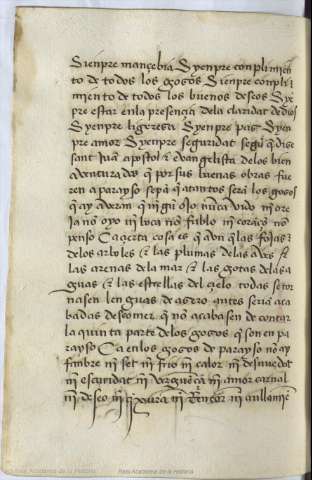 Sienpre mançebia Syenpre conplimien
to de todos los gozos Sienpre conpli
miento de todos los buenos deseos Sye
pre estar en la presençia de la claridad de dios
Syenpre ligereza Syenpre paz Syen
pre amor Syenpre seguridat segū q̄ dise
sant Juā apostol & evangelista de los bien
aventurados q̄ por sus buenas obras fue
ren a parayso sepā q̄ atantos serā los gozos
q̄ ay averan q̄ nīgū ojo nūca vido nī ore
ja nō oyo nī boca nō fablo nī coraçō nō
penso Ca çierta cosa es q̄ avn q̄ las fojas
de los arboles & las plumas de las aves &
las arenas de la mar & las gotas de las a
guas & las estrellas del çielo todas se tor
nasen lenguas de azero antes serian aca
badas q̄ no acabasen de contar
la quinta parte de los gozos q̄ son en pa
rayso Ca en los gozos de parayso nō ay
fanbre nī set nī frio nī calor nī desnuedat
nī escuridat nī verguença nī amor carnal
nī deseo nī nī rencor nī
Real Academia de la Historia